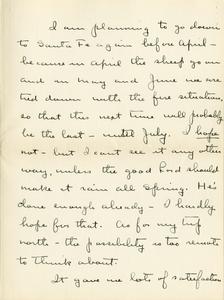 I am planning to go down
to Santa Fe again before April -
because in April the sheep go on
and in May and June we are
tied down with the fire situation,
so that this next time will probably
be the last - until July. I hope
not - but I can't see it any other
way, unless the good Lord should
make it rain all Spring. He's
done enough already - I hardly
hope for that. As for my trip
north - the possibility is too remote
to think about.
It gave me lots of satisfaction